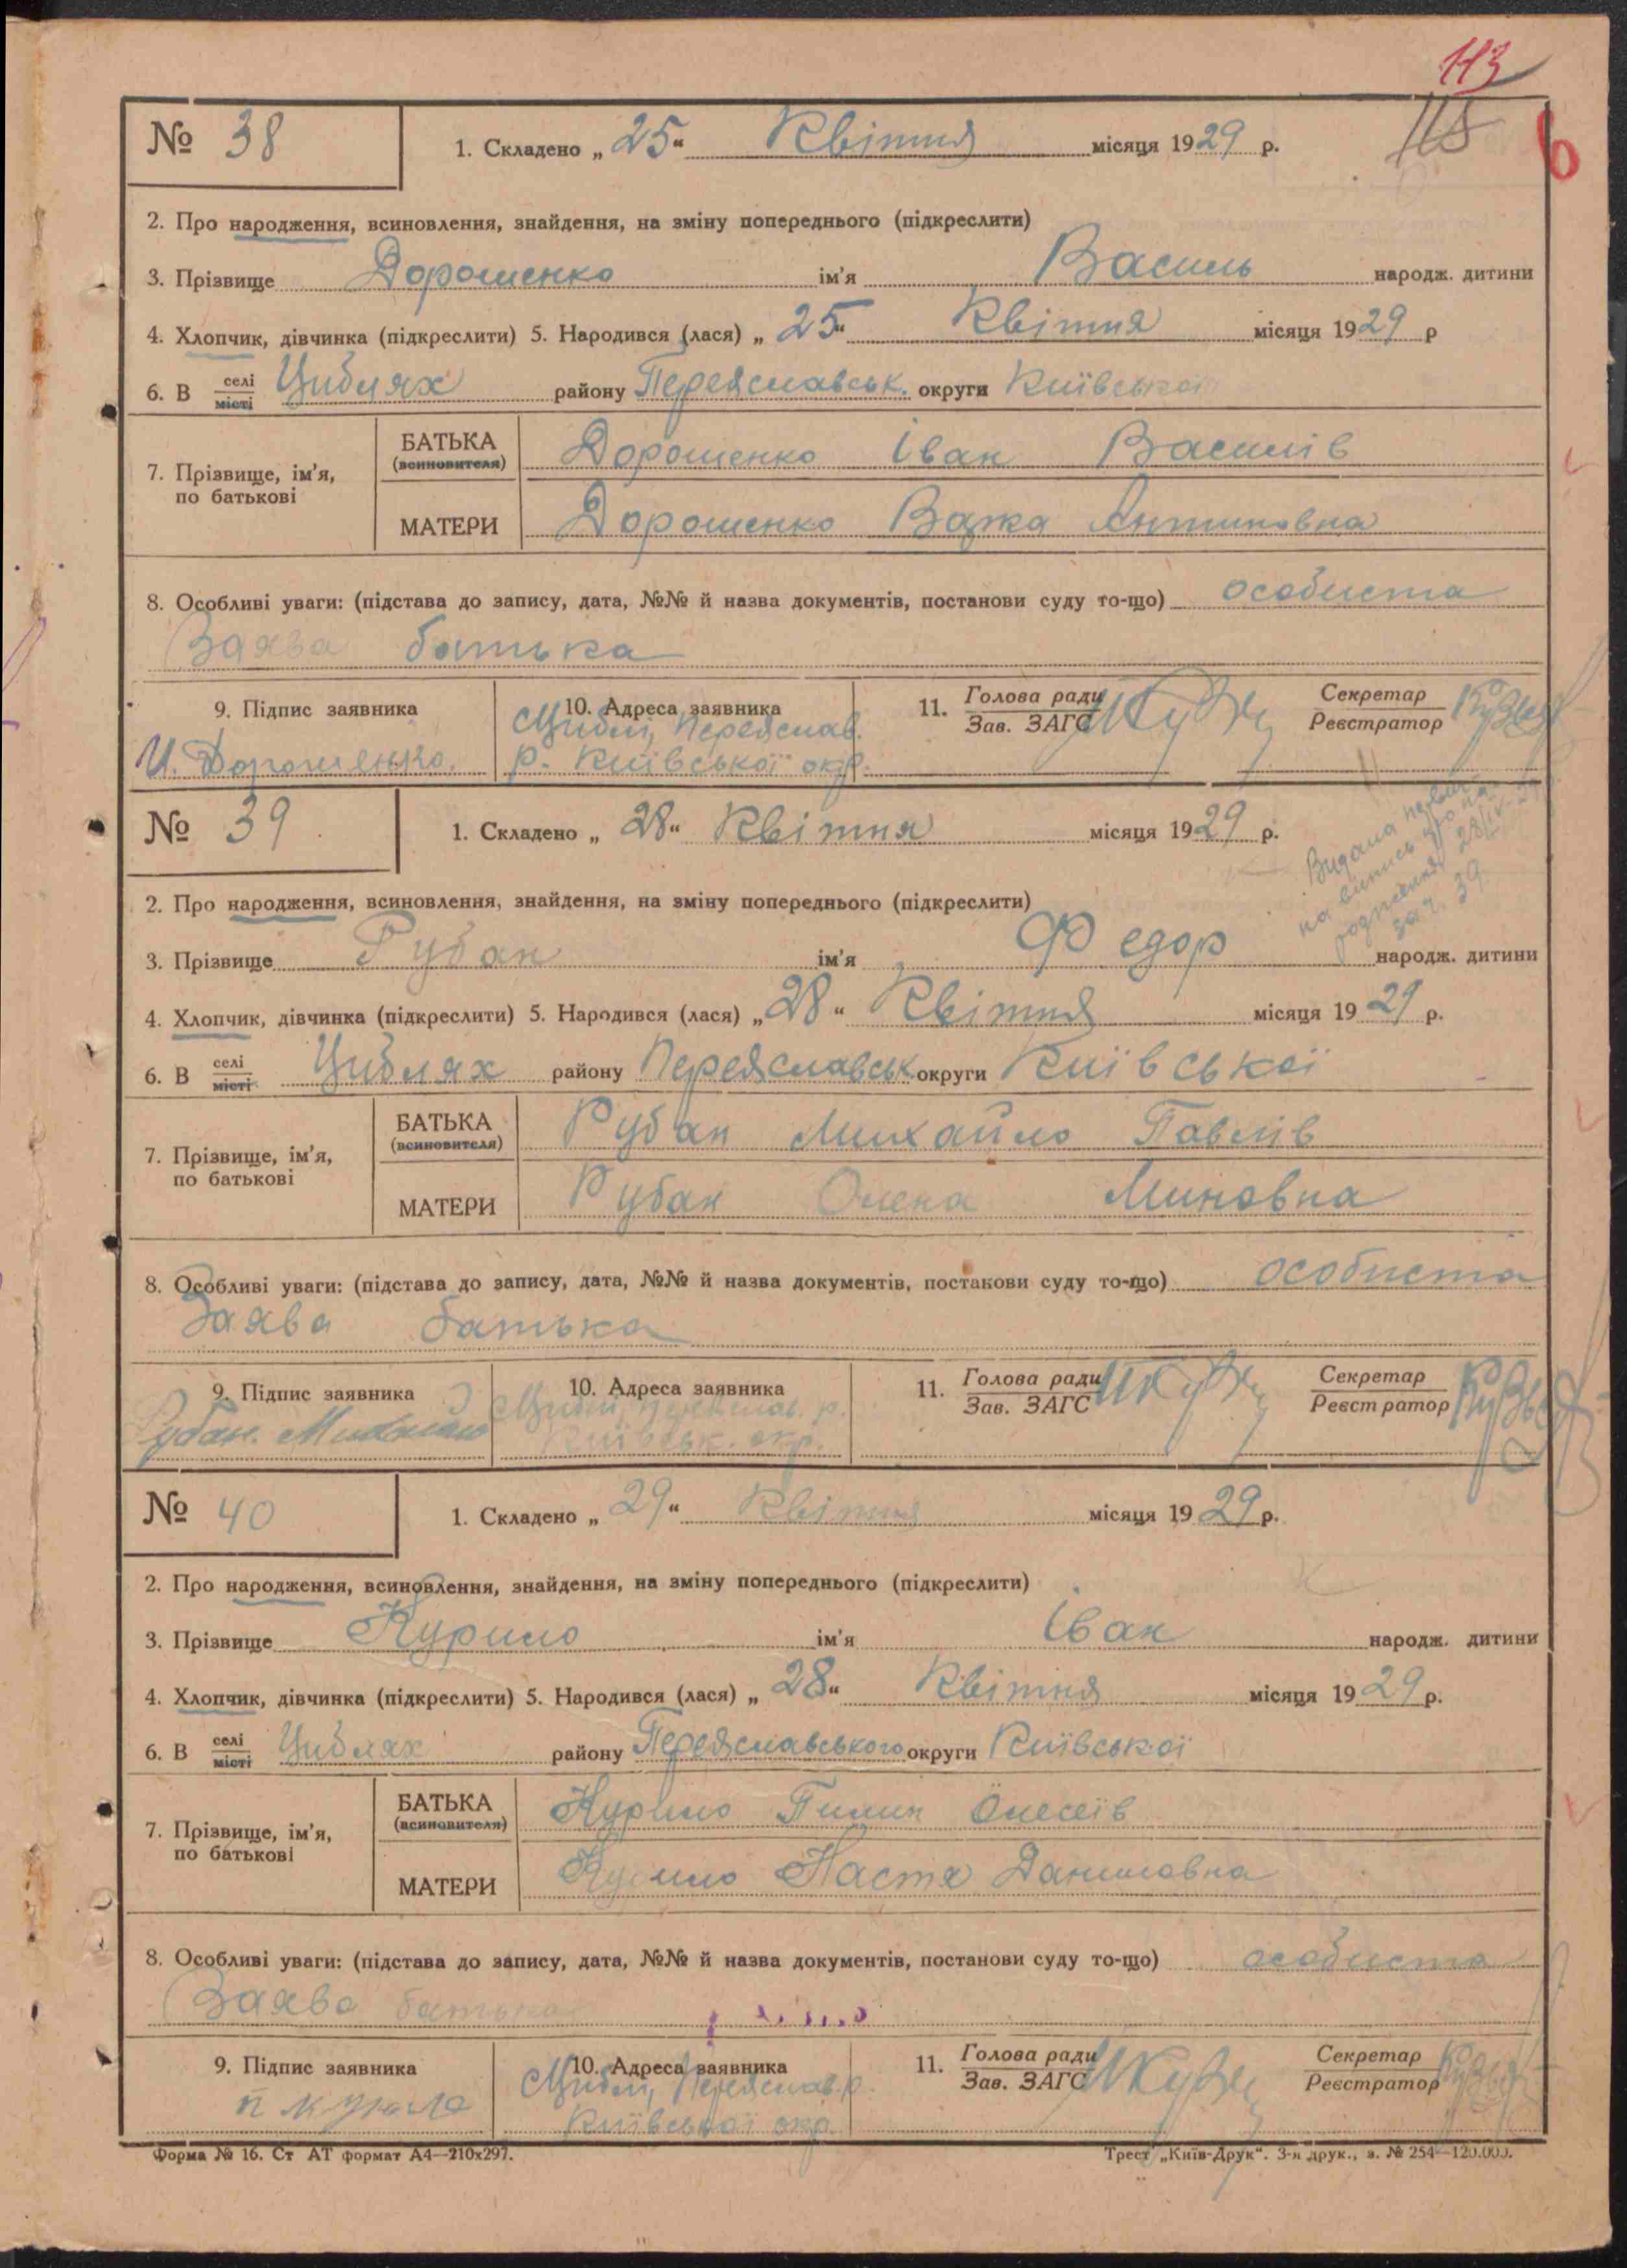 113
115
№ 38
1. Складено „ 25 “ Квітня місяця 1929 р.
2. Про народження, всиновлення, знайдення, на зміну попереднього (підкреслити)
3. Прізвище Дорошенко ім'я Василь народж. дитини
4. Хлопчик, дівчинка (підкреслити) 5. Народився (лася) „ 25 “ Квітня місяця 1929 р
6. В селі місті Циблях району Переяславськ. округи Київської
7. Прізвище, ім'я, по батькові
БАТЬКА (всиновителя) Дорошенко Іван Василів
МАТЕРИ Дорошенко Антиповна
8. Особливі уваги: (підстава до запису, дата, №№ й назва документів, постанови суду то-що) особиста
Заява батька
9. Підпис заявника
И. Дорошенко.
10. Адреса заявника
Циблі, Переяслав.
р. Київської окр.
11. Голова ради Зав. ЗАГС
Секретар Реєстратор
№ 39
1. Складено „ 28 “ Квітня місяця 1929 р.
Видана
на випись про на-
родження 28/IV-29
за ч. 39.
2. Про народження, всиновлення, знайдення, на зміну попереднього (підкреслити)
3. Прізвище Рубан ім'я Федор народж. дитини
4. Хлопчик, дівчинка (підкреслити) 5. Народився (лася) „ 28 “ Квітня місяця 1929 р.
6. В селі місті Циблях району Переяславськ. округи Київської
7. Прізвище, ім'я, по батькові
БАТЬКА (всиновителя) Рубан Михайло Павлів
МАТЕРИ Рубан Олена Миновна
8. Особливі уваги: (підстава до запису, дата, №№ й назва документів, постанови суду то-що) особиста
Заява батька
9. Підпис заявника
Рубан. Михайло
10. Адреса заявника
Циблі, Переяслав. р.
Київськ. окр.
11. Голова ради Зав. ЗАГС
Секретар Реєстратор
№ 40
1. Складено „ 29 “ Квітня місяця 1929 р.
2. Про народження, всиновлення, знайдення, на зміну попереднього (підкреслити)
3. Прізвище Курило ім'я Іван народж. дитини
4. Хлопчик, дівчинка (підкреслити) 5. Народився (лася) „ 28 “ Квітня місяця 1929 р.
6. В селі місті Циблях району Переяславського округи Київської
7. Прізвище, ім'я, по батькові
БАТЬКА (всиновителя) Курило Пилип Олесеїв
МАТЕРИ Курило Настя Даниловна
8. Особливі уваги: (підстава до запису, дата, №№ й назва документів, постанови суду то-що) особиста
Заява батька
9. Підпис заявника
п курило
10. Адреса заявника
Циблі, Переяслав. р.
Київської окр.
11. Голова ради Зав. ЗАГС
Секретар Реєстратор
Форма № 16. Ст АТ формат А4—210х297.
Трест „Київ-Друк“. 3-я друк., з. № 254—120.000.